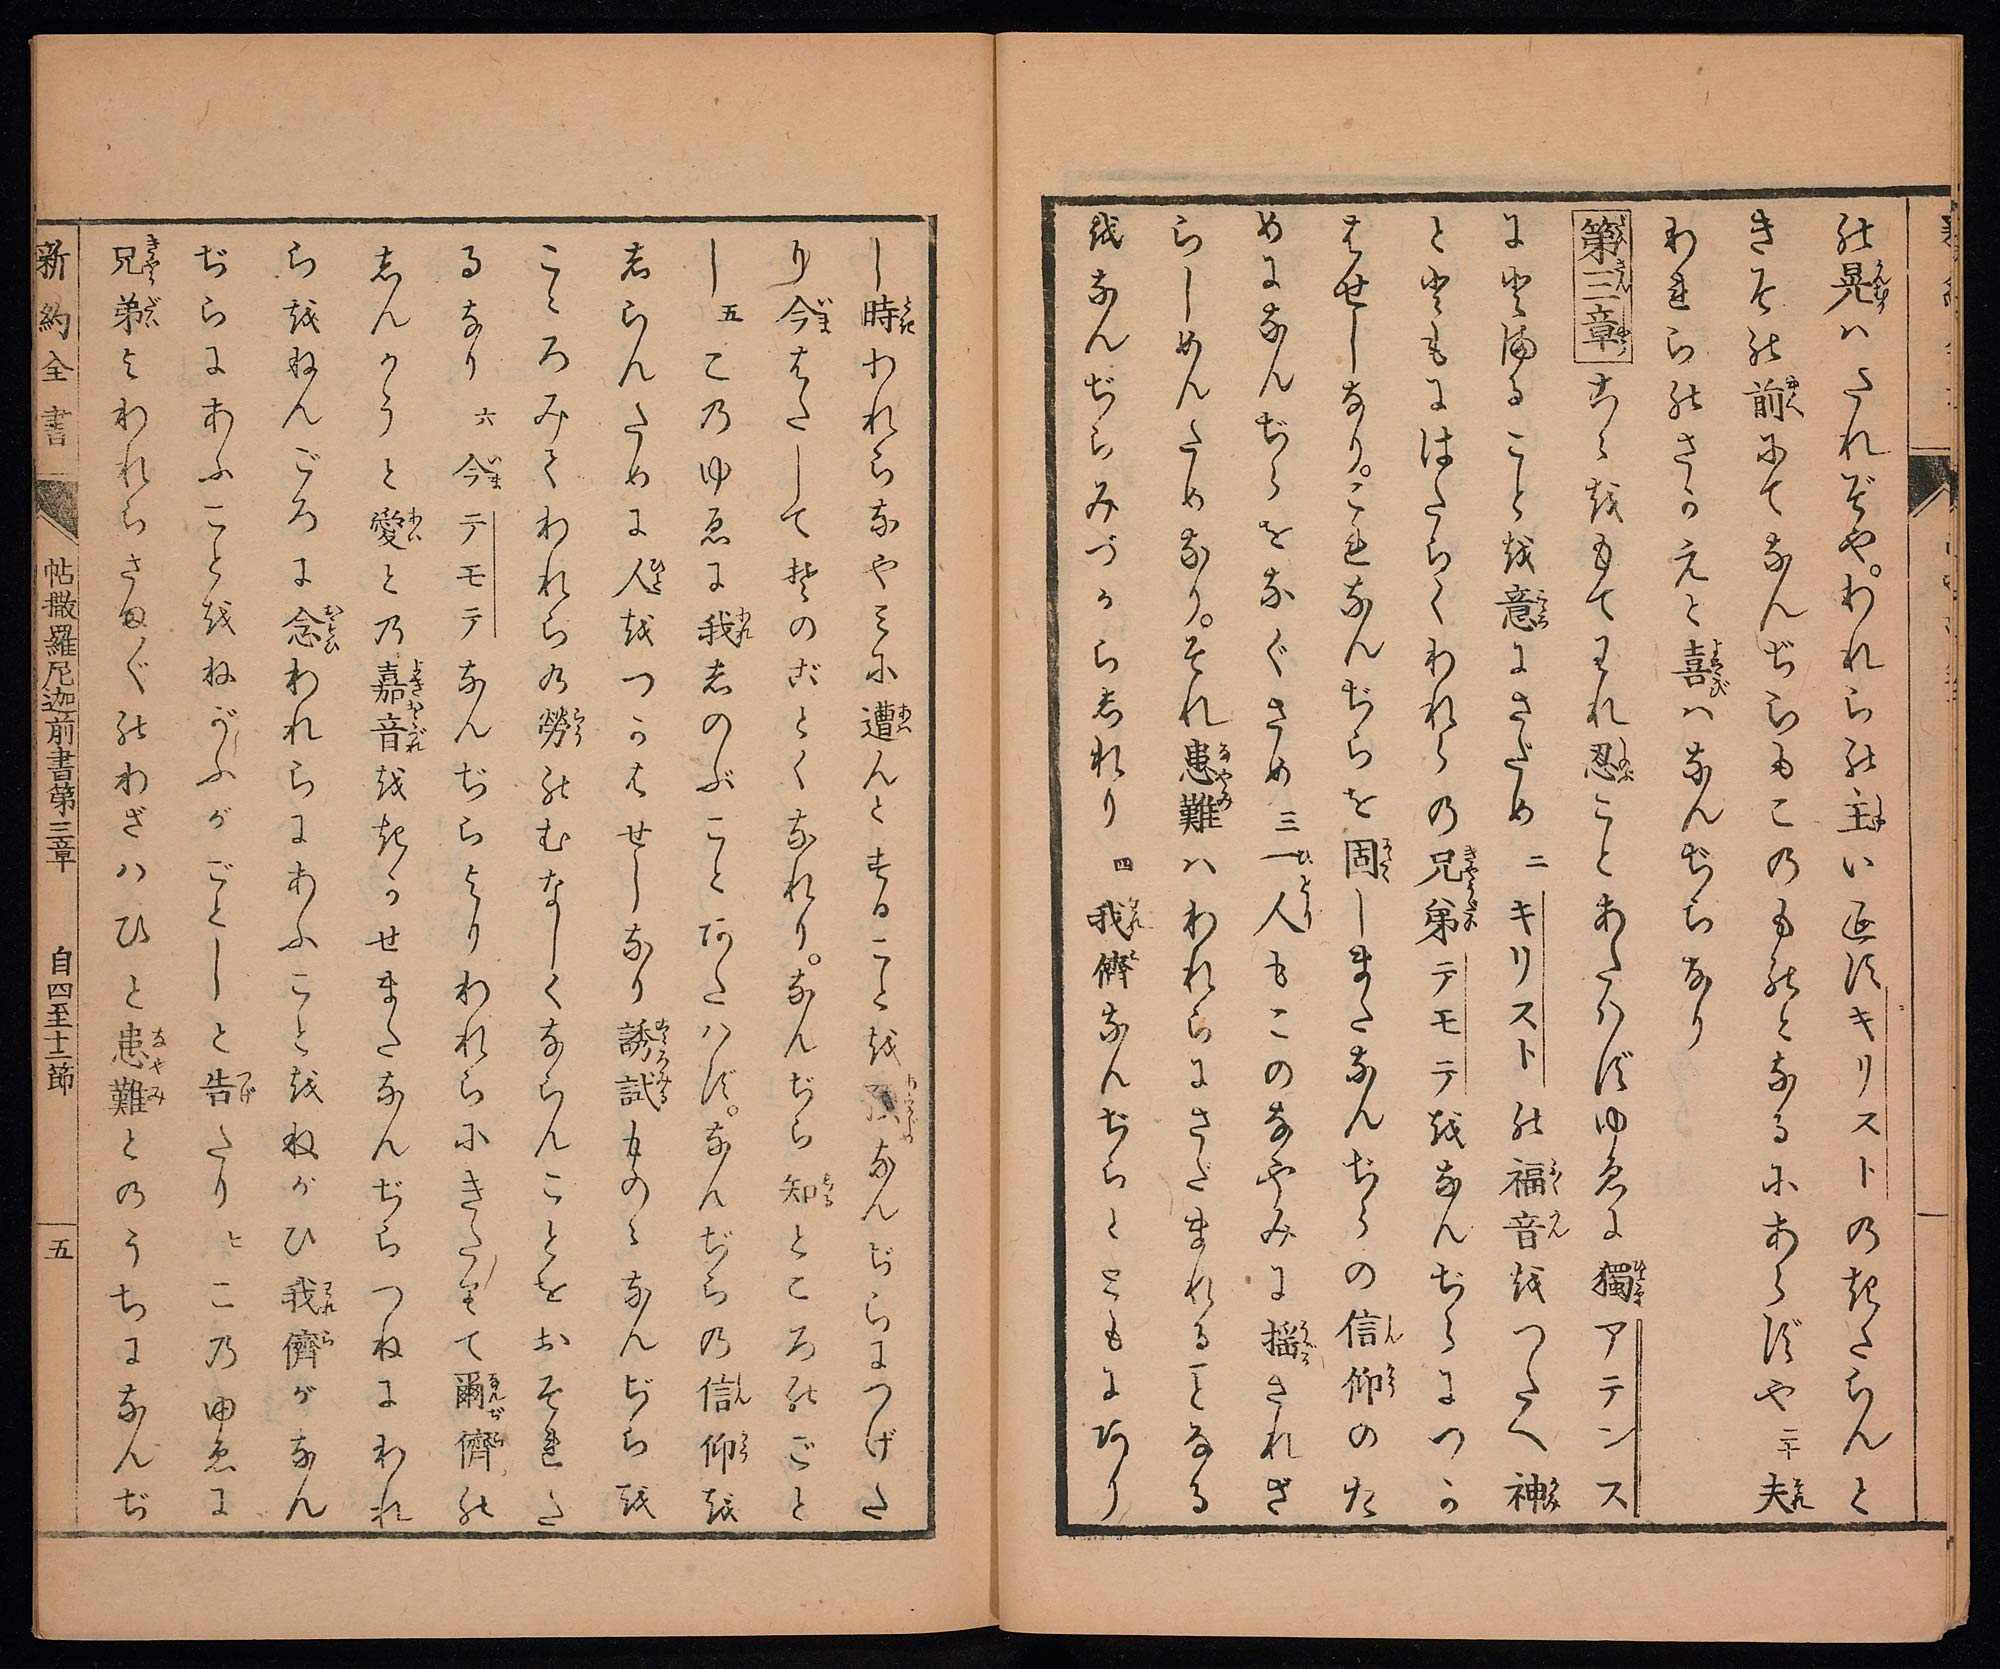 の晃ハたれぞや。われらの主いえすキリストの来たらんと
きその前にてなんぢらもこのものとなるにあらずや 二十 夫
われらのさかえと喜ハなんぢらなり
第三章 こゝをもてわれ忍ことあたハずゆゑに獨アテンス
にとゞまることを意にさだめ 二 キリストの福音をつたへ神
とともにはたらくわれらの兄弟テモテをなんぢらにつか
はせしなり。これなんぢらを固しまたなんぢらの信仰のた
めになんぢらをなぐさめ 三 一人もこのなやみに揺されざ
らしめんためなり。それ患難ハわれらにさだまれることなる
をなんぢらみづから知れり 四 我儕なんぢらとともにあり
し時われらなやみに遭んとすることをなんぢらにつげた
り今はたしてそのごとくなれり。なんぢら知ところのごと
し 五 この
ゆゑに我しのぶことあたハず。なんぢらの信仰を
しらんために人をつかはせしなり誘試ものゝなんぢらを
こゝろみてわれらの勞のむなしくならんことをおそれた
るなり 六 今テモテなんぢらよりわれらにきたりて爾儕の
しんかうと愛との嘉音をきかせまたなんぢらつねにわれ
らをねんごろに念われらにあふことをねがひ我儕がなん
ぢらにあふことをねがふがごとしと告たり 七 このゆゑに
兄弟よわれらさま〴〵のわざハひと患難とのうちになんぢ
新約全書 帖撒羅尼迦前書第三章 自四至十二節 五